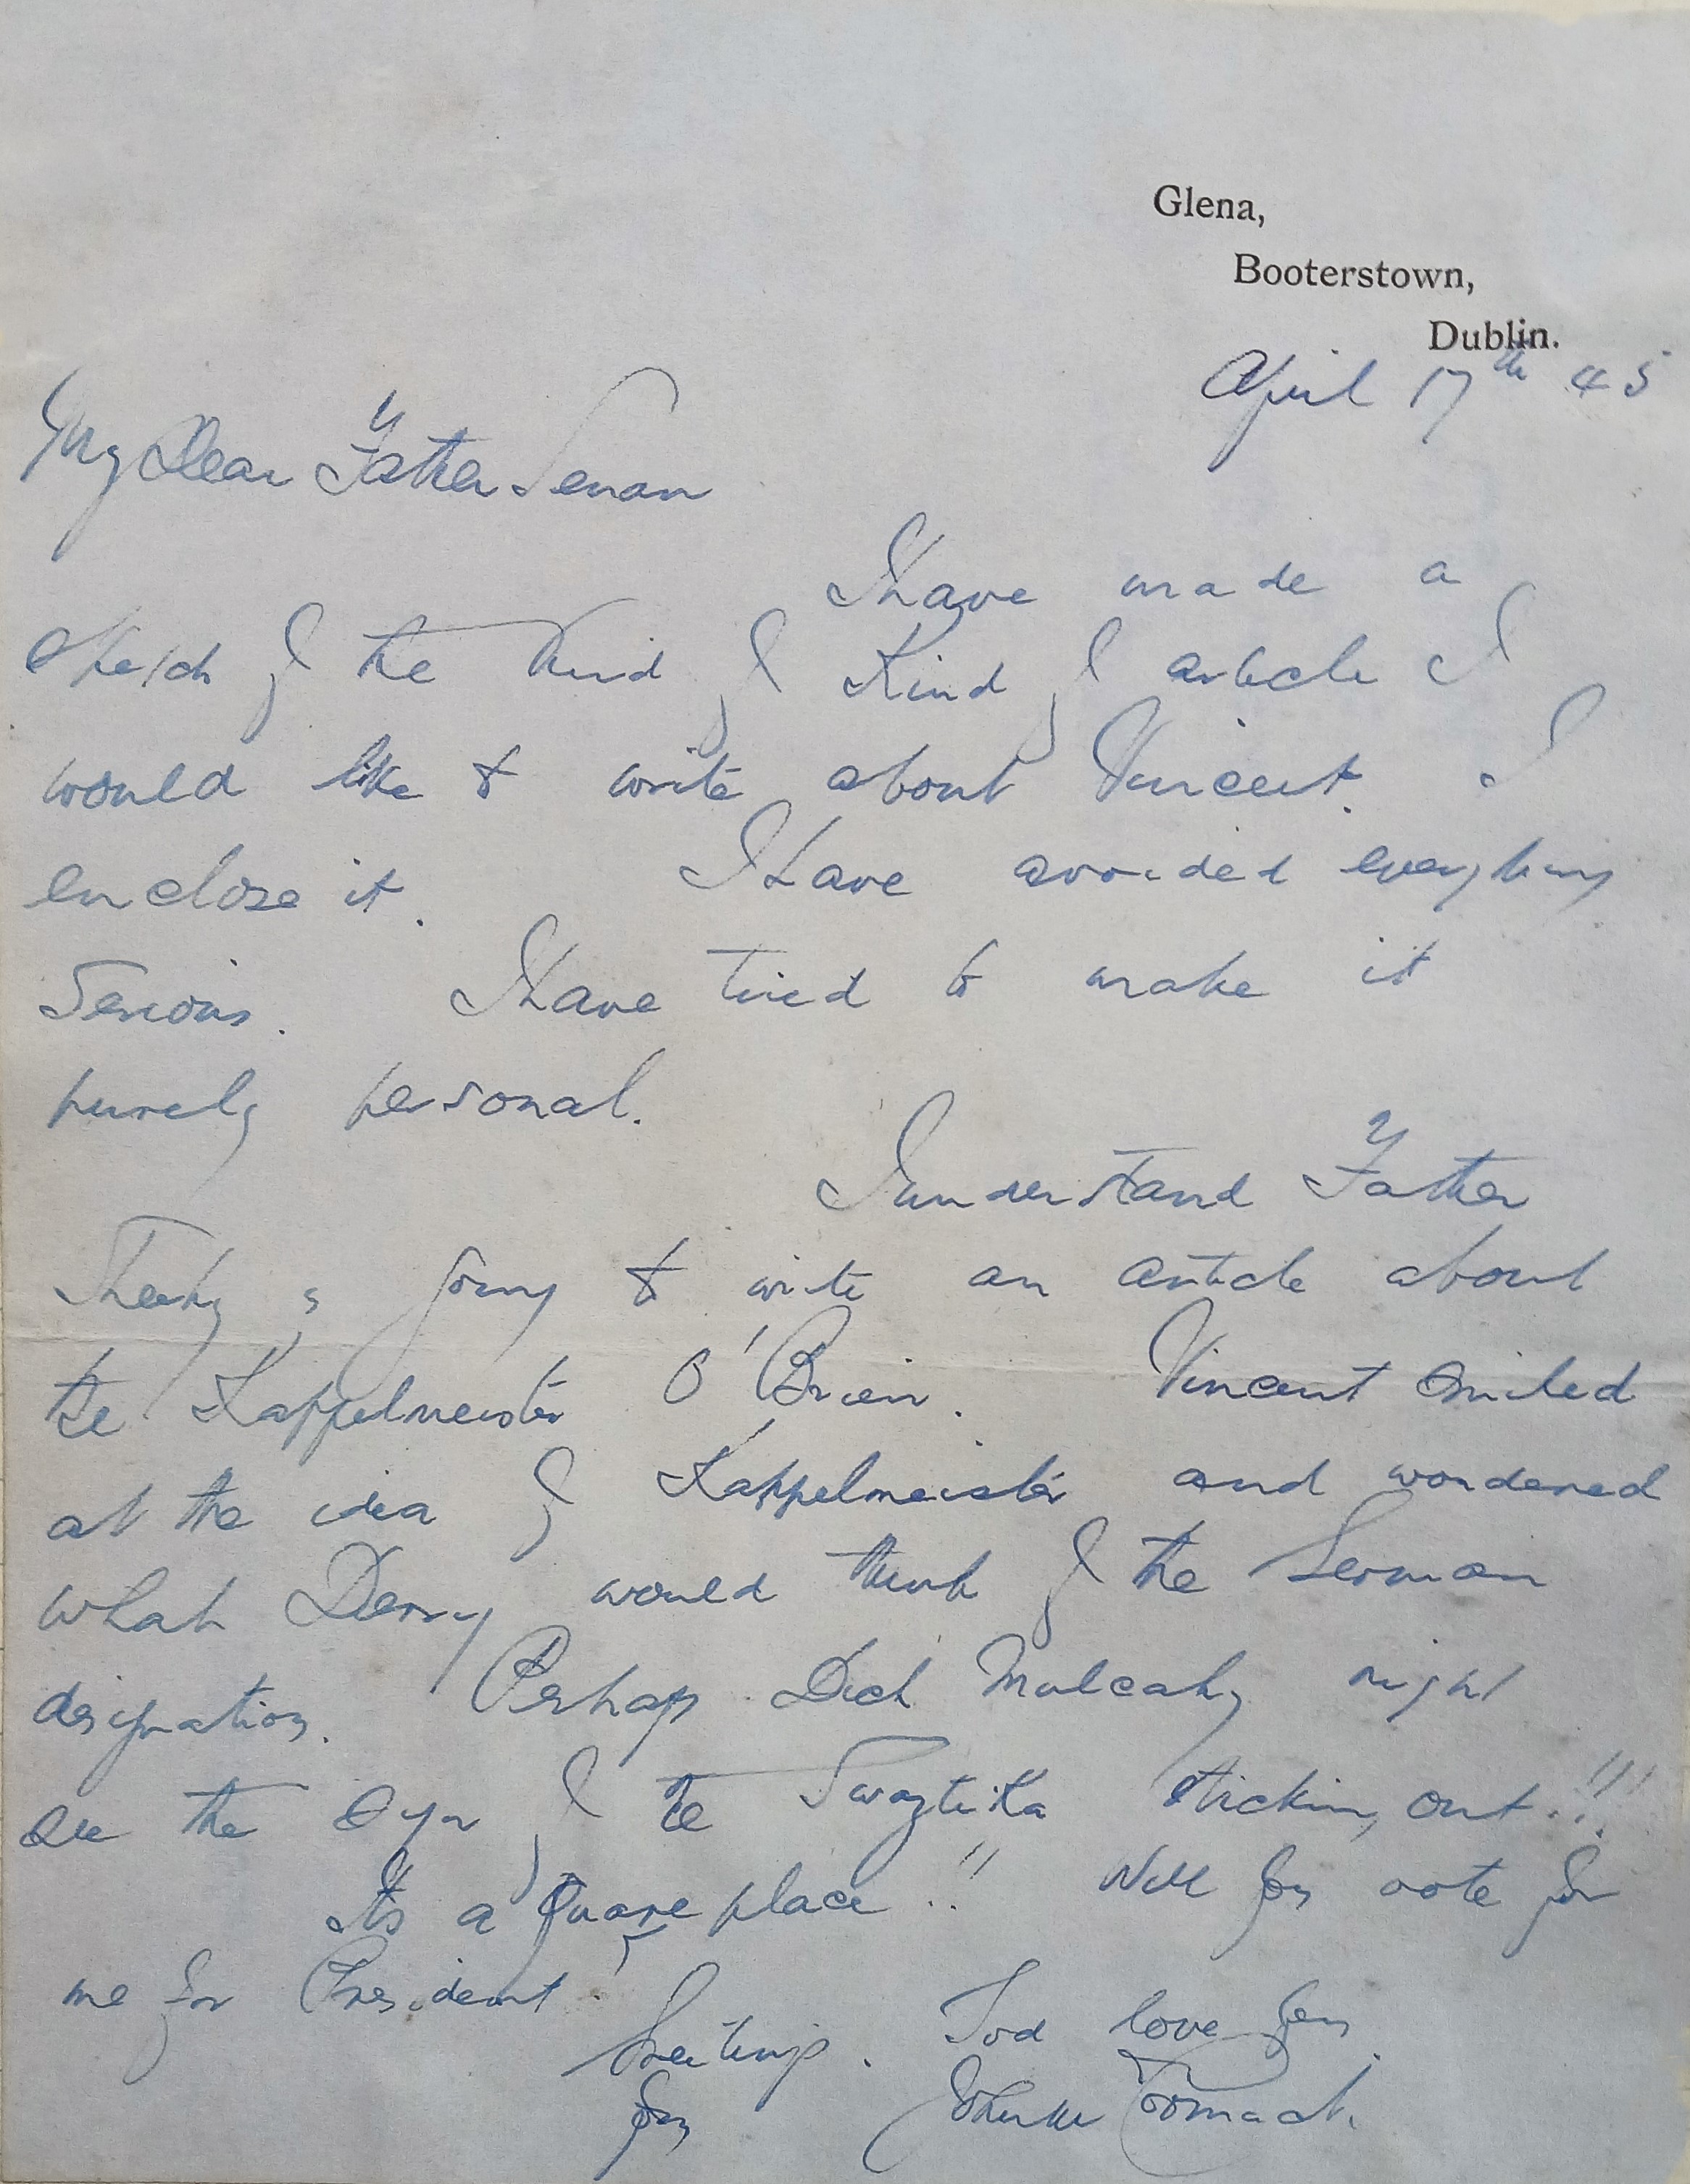 Glena,
Booterstown,
Dublin.
April 17th 45
My Dear Father Senan
I have made a
sketch of the kind of kind of article I
would like to write about Vincent. I
enclose it. I have avoided everything
serious. I have tried to make it
purely personal.
I understand Father
Sheehy is going to write an article about
the Kappelmeister O'Brien. Vincent smiled
at the idea of Kappelmeister and wondered
what Derry would think of the German
designation. Perhaps Dick Mulcahy might
see the sign of the Swaztika sticking out!!!
Its a Quare place!! Will you vote for
me for President!
Greetings. God love you.
John McCormack.